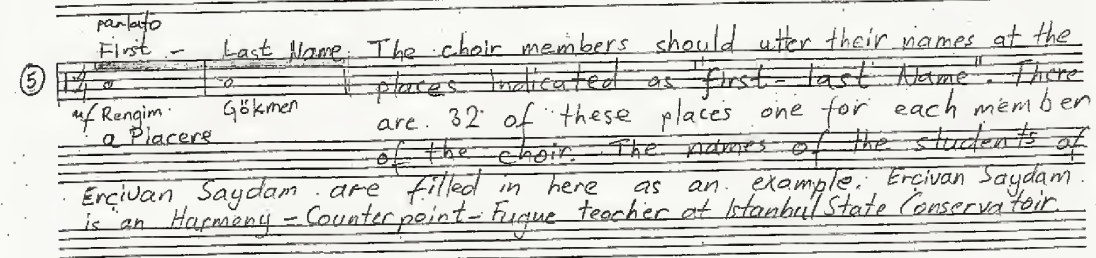 parlato
First - Last Name. The choir members should utter their names at the
⑤ places indicated as "first - last Name". There
mf Rengim Gökmen are 32 of these places one for each member
a Piacere
of the choir. The names of the students of
Ercivan Saydam are filled in here as an example. Ercivan Saydam
is an Harmony - Counterpoint - Fugue teacher at Istanbul State Conservatoir